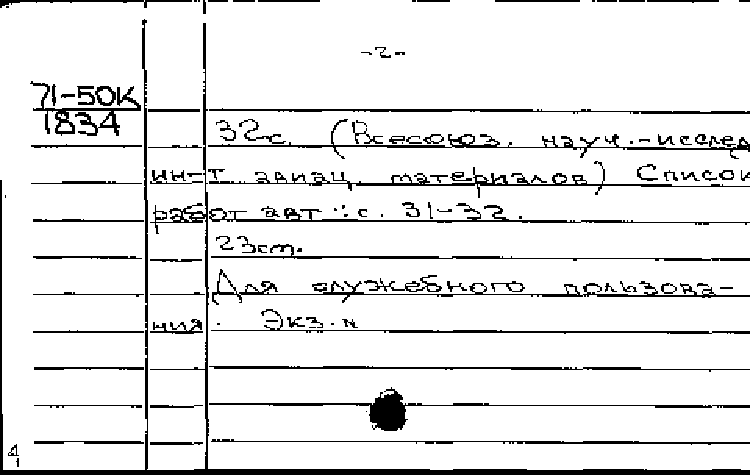 -2-
71-50К
1834
32с. (Всесоюз. науч.-исслед
ин-т авиац. материалов) Список
работ авт.: с. 31-32.
23см.
Для служебного пользова-
ния. Экз. N